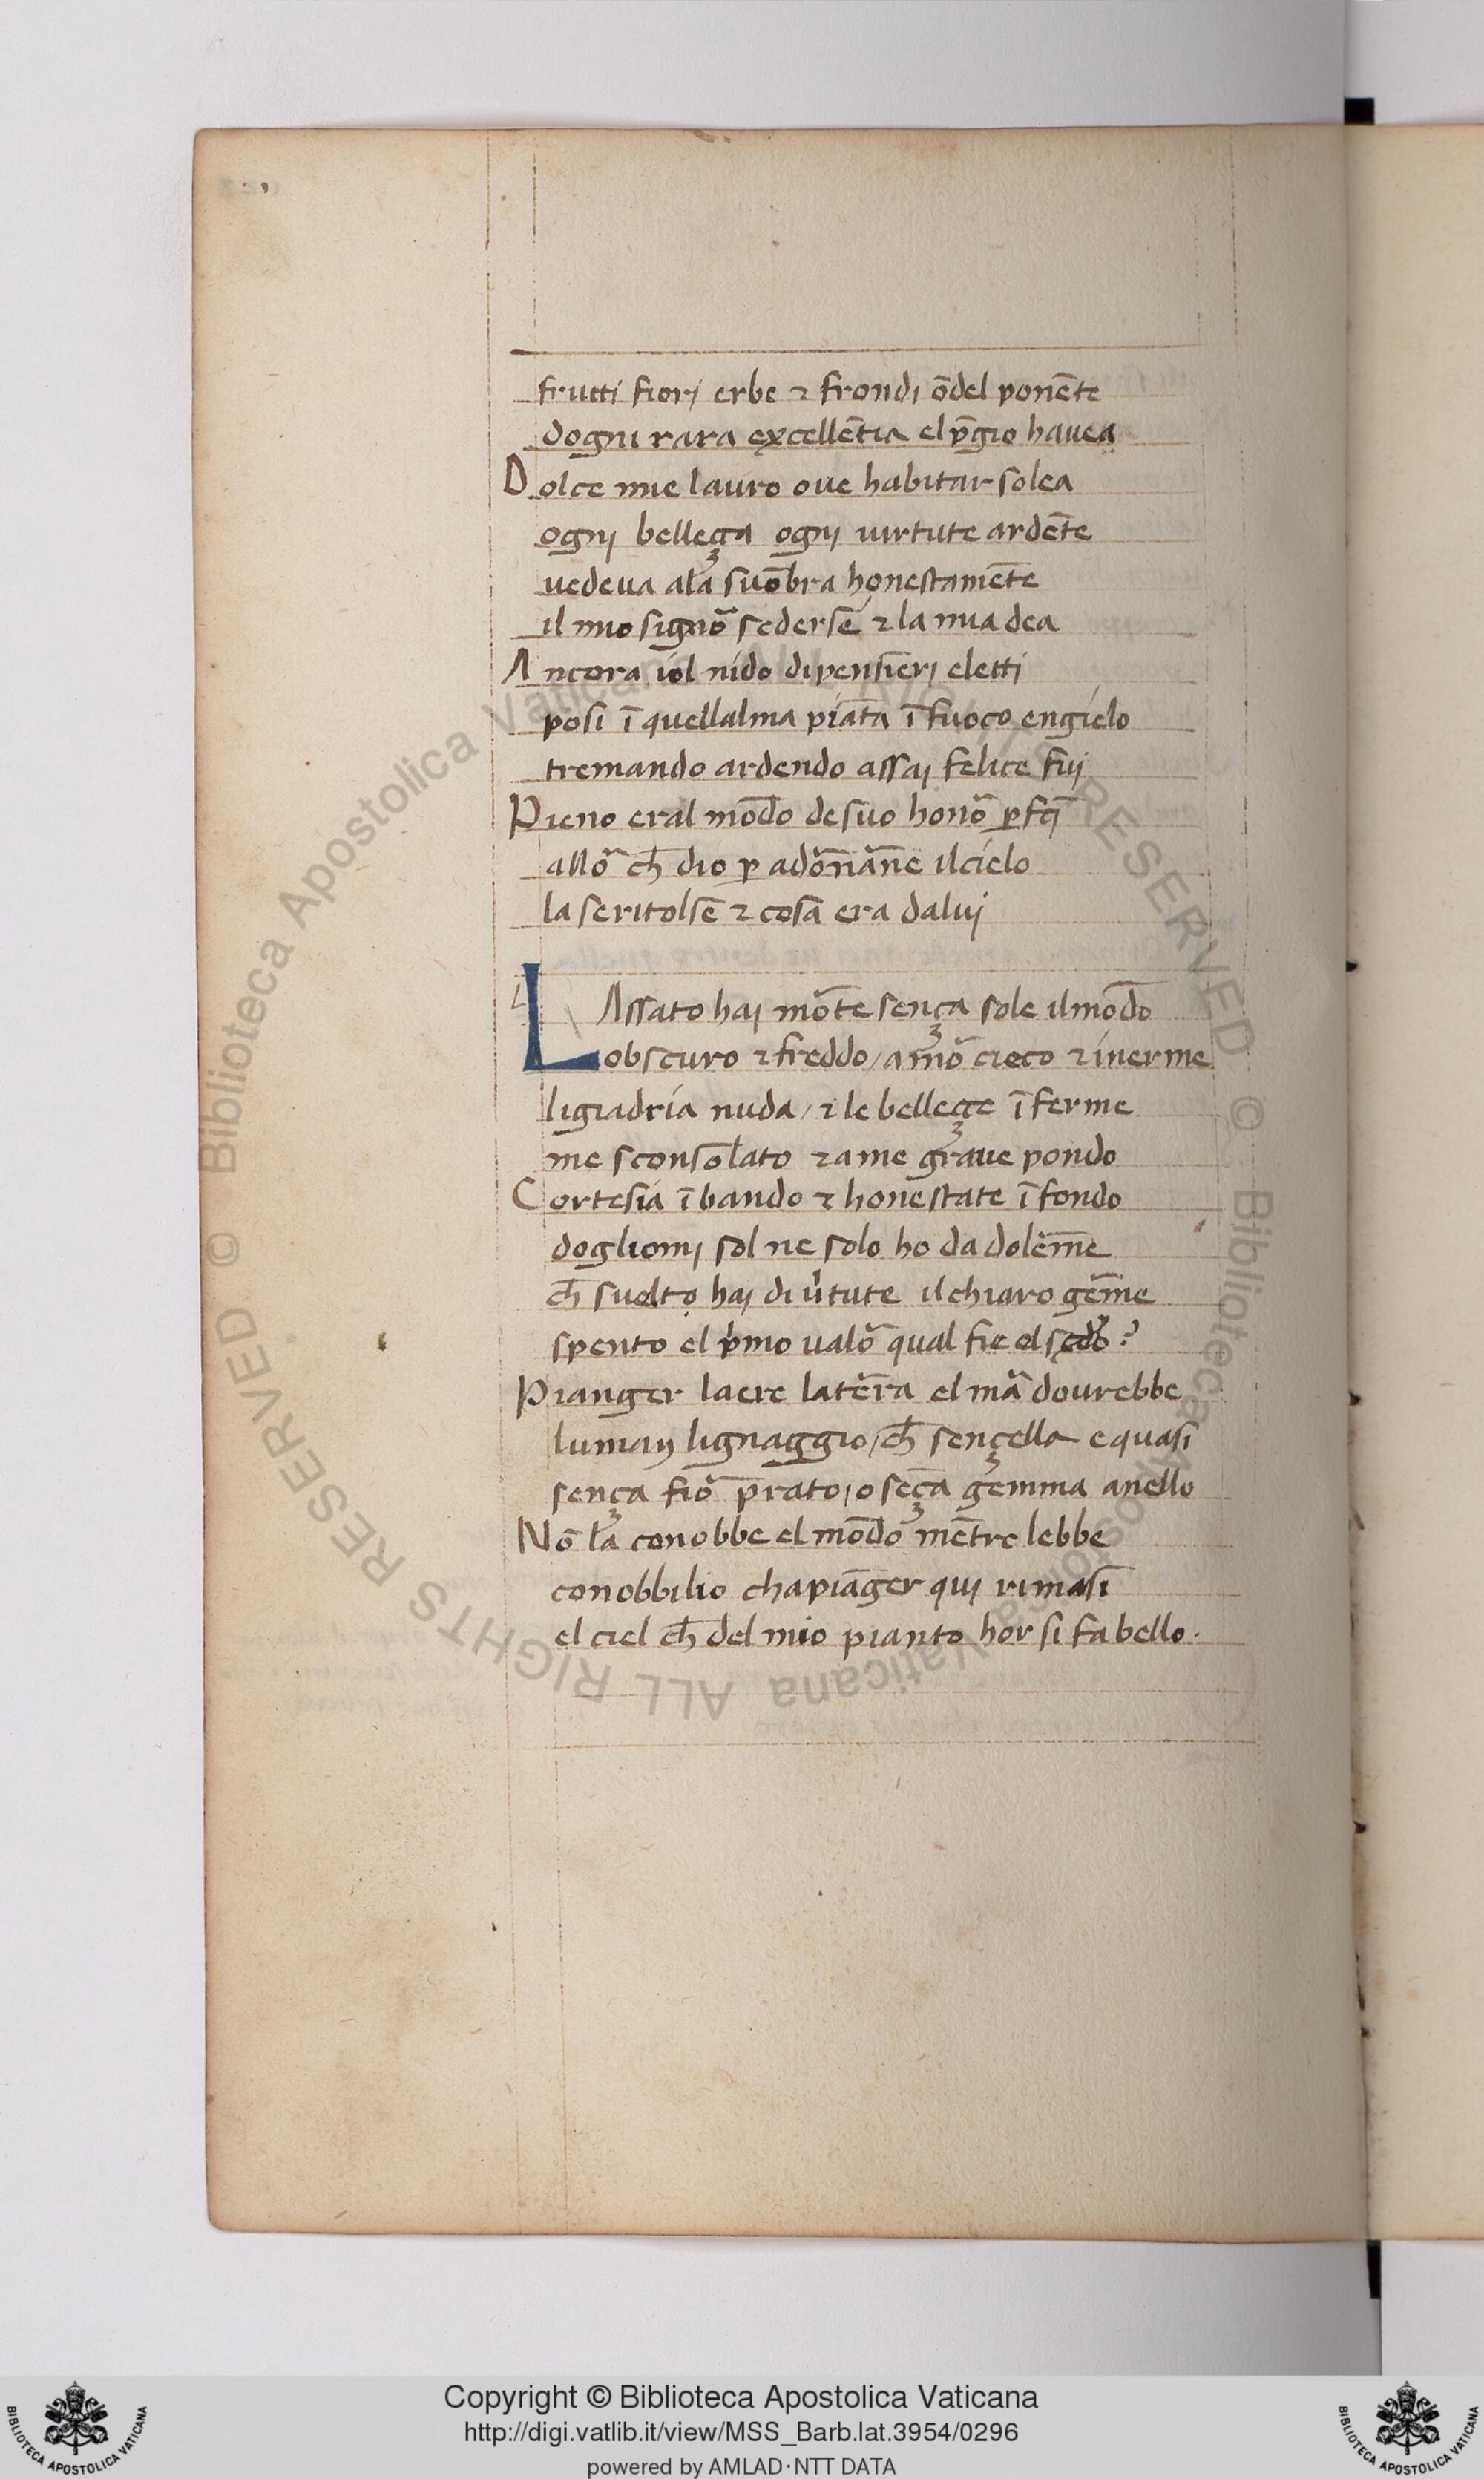 frutti fiorj erbe ⁊ frondi ōdel ponēte
dogni rara excellētia el p̄gio hauea
Dolce mie lauro oue habitar solea
ognj belleça ognj uirtute ardēte
uedeua ala suōbra honestamēte
il mio signō sedersē ⁊ la mia dea
Ancora iol nido di pensierj eletti
posi ī quellalma piāta ī fuoco engielo
tremando ardendo assaj felice fuj
Pieno eral mōdo de suo honō
allō ch̄ dio ꝑ adōrnāne il cielo
la se ritolsē ⁊ cosā era daluj
LAssato haj mōte sença sole il mōdo
obscuro ⁊ freddo / amō cieco ⁊ inerme
ligiadria nuda / ⁊ le belleçe ī ferme
me sconsolato ⁊ a me graue pondo
Cortesia ī bando ⁊ honestate ī fondo
dogliomj sol ne solo ho da dolēme
ch̄ suelto haj di ūtute il chiaro gēme
spento el pͥmo ualō qual fie el sc̄do?
Pianger laere latēra el mā dourebbe
luman lignaggio / ch̄ sençella e quasi
sença fiō prato / o sēça gemma anello
Nō la conobbe el mōdo mētre lebbe
conobbilio cha piāger quj rimasi
el ciel ch̄ del mio pianto hor si fa bello.
Copyright © Biblioteca Apostolica Vaticana
http://digi.vatlib.it/view/MSS_Barb.lat.3954/0296
powered by AMLAD·NTT DATA
BIBLIOTECA APOSTOLICA VATICANA
BIBLIOTECA APOSTOLICA VATICANA
Biblioteca Apostolica Vaticana ALL RIGHTS RESERVED ©
Biblioteca Apostolica Vaticana ALL RIGHTS RESERVED ©